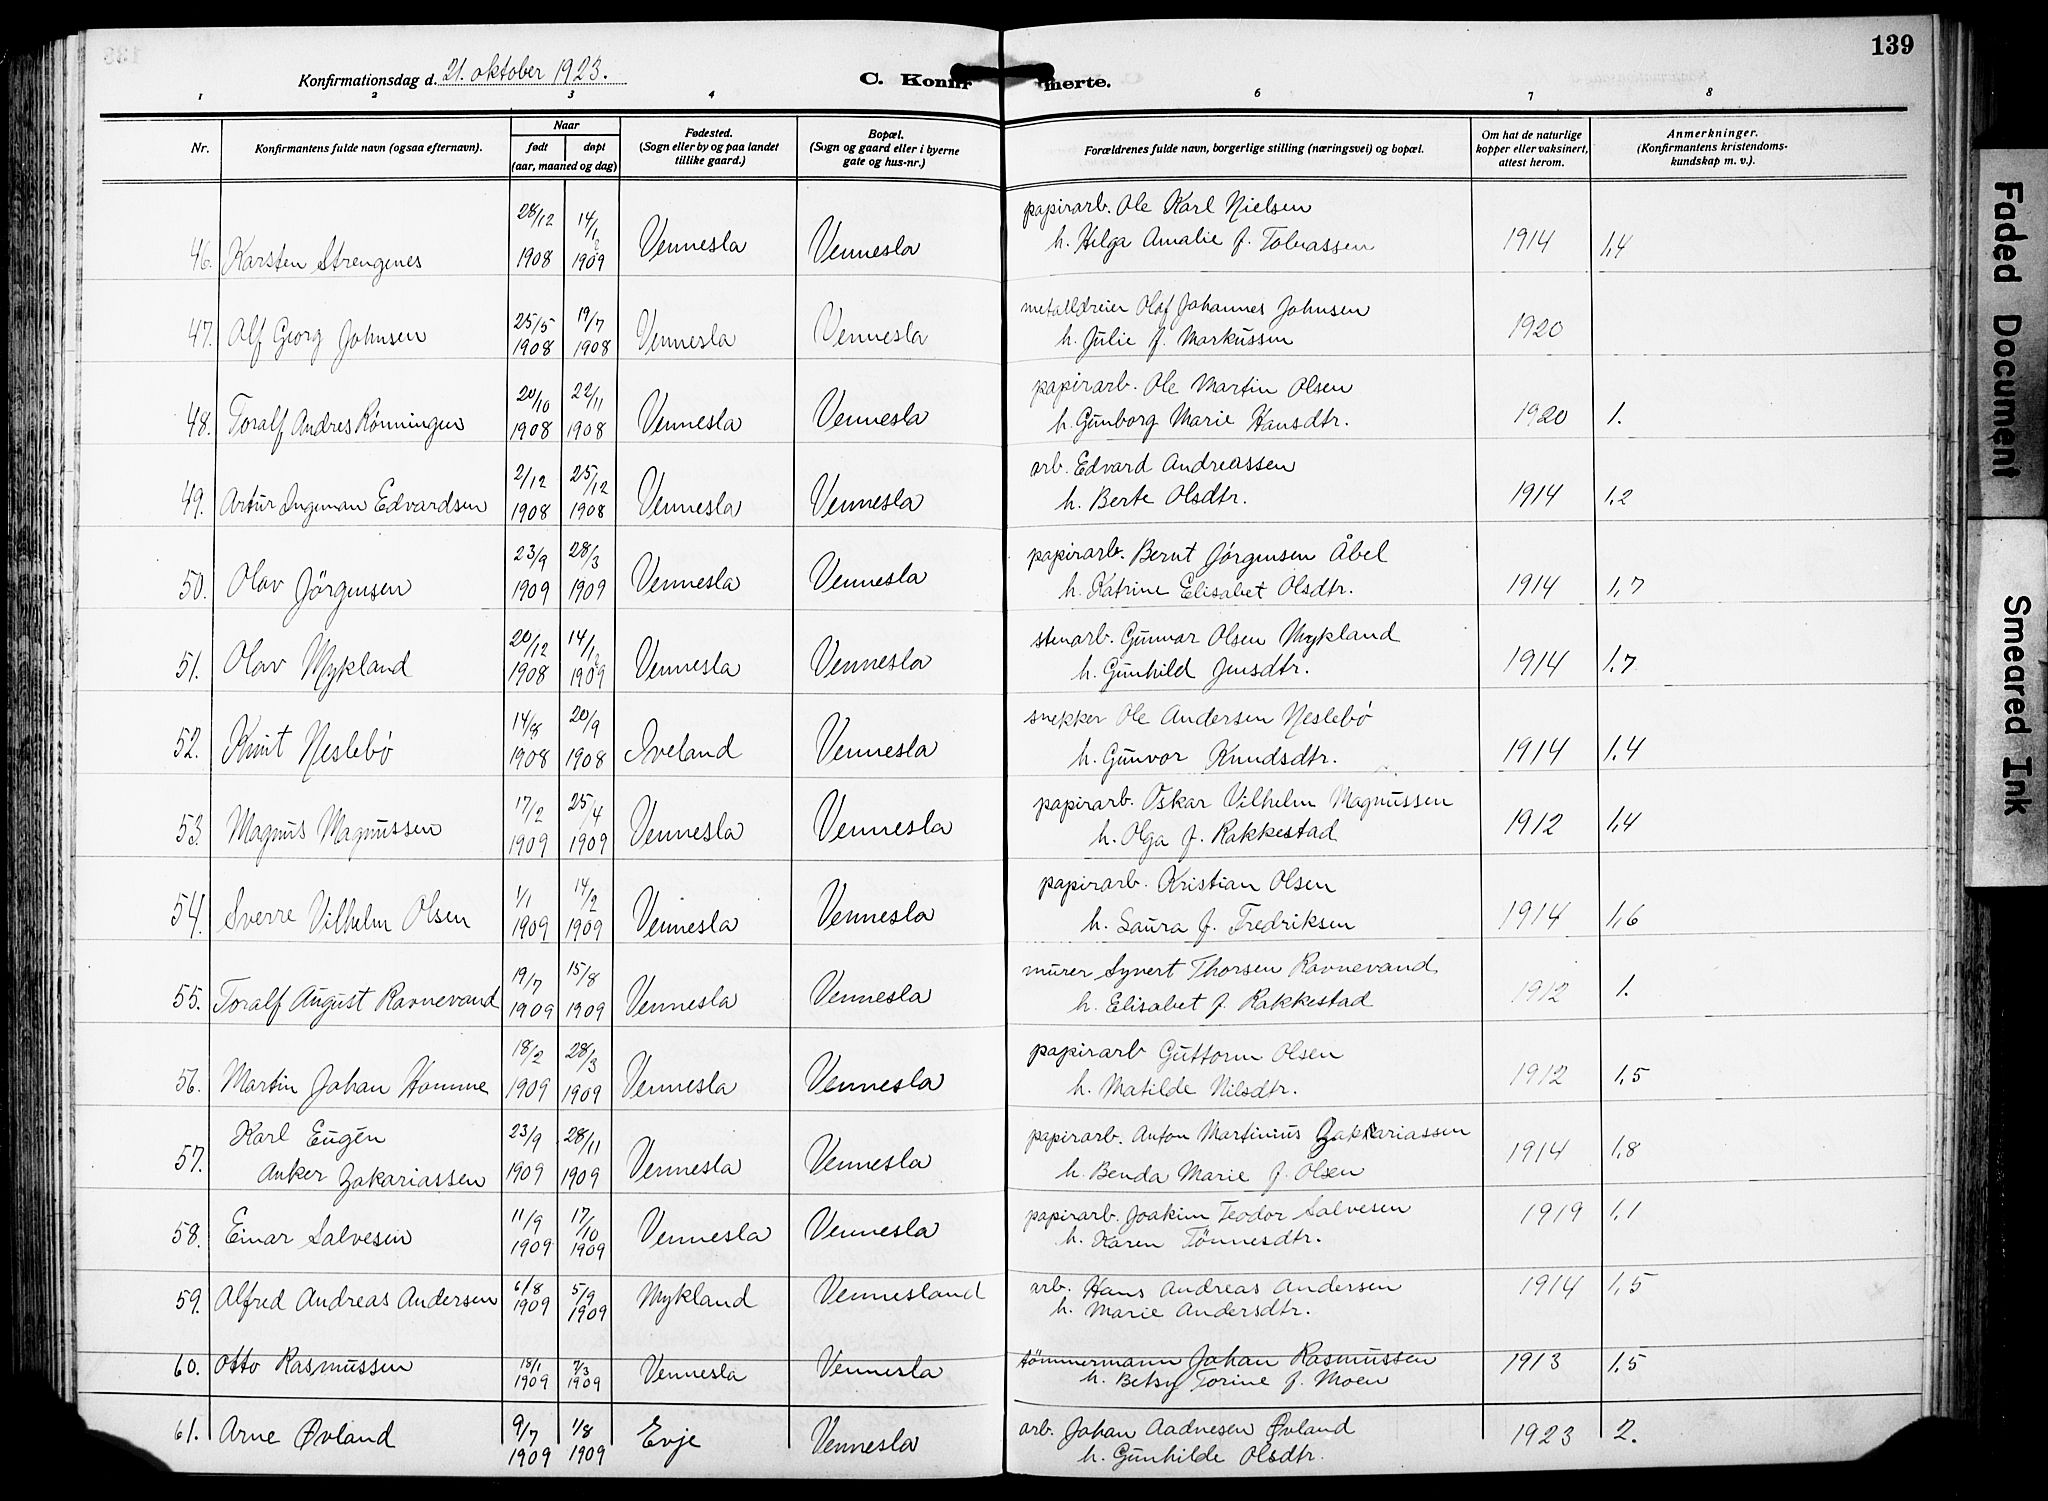 139
Konfirmationsdag d. 21. oktober 1923.
C. Konfir merte.
1 2 3 4 6 7 8
Nr. Konfirmantens fulde navn (ogsaa efternavn). Naar født døpt (aar, maaned og dag) Fødested. (Sogn eller by og paa landet tillike gaard.) Bopæl. (Sogn og gaard eller i byerne gate og hus-nr.) Forældrenes fulde navn, borgerlige stilling (næringsvei) og bopæl. Om hat de naturlige kopper eller vaksinert, attest herom. Anmerkninger. (Konfirmantens kristendoms-kundskap m. v.).
28/12 14/2 papirarb. Ole Karl Nielsen
46. Karsten Strengenes 1908 1909 Vennesla Vennesla h. Helga Amalie f. Tobiassen 1914 1,4
25/5 19/7 metalldreier Olaf Johannes Johnsen
47. Alf Georg Johnsen 1908 1908 Vennesla Vennesla h. Julie f. Markussen 1920
20/10 22/11 papirarb. Ole Martin Olsen
48. Toralf Andres Rønningen 1908 1908 Vennesla Vennesla h. Gunborg Marie Hansdtr. 1920 1.
2/12 25/12 arb. Edvard Andreassen
49. Artur Ingeman Edvardsen 1908 1908 Vennesla Vennesla h. Berte Olsdtr. 1914 1,2
23/9 28/3 papirarb. Bernt Jørgensen Åbel
50. Olav Jörgensen 1909 1909 Vennesla Vennesla h. Katrine Elisabet Olsdtr. 1914 1,7
20/12 14/2 stenarb. Gunnar Olsen Mykland
51. Olav Mykland 1908 1909 Vennesla Vennesla h. Gunhild Jensdtr. 1914 1,7
14/8 20/9 snekker Ole Andersen Neslebö
52. Knut Neslebö 1908 1908 Iveland Vennesla h. Gunvor Knudsdtr. 1914 1,4
17/2 25/4 papirarb. Oskar Vilhelm Magnussen
53. Magnus Magnussen 1909 1909 Vennesla Vennesla h. Olga f. Rakkestad 1912 1,4
1/1 14/2 papirarb. Kristian Olsen
54. Sverre Vilhelm Olsen 1909 1909 Vennesla Vennesla h. Laura f. Fredriksen 1914 1,6
19/7 15/8 murer Syvert Thorsen Ravnevand
55. Toralf August Ravnevand 1909 1909 Vennesla Vennesla h. Elisabet f. Rakkestad 1912 1.
18/2 28/3 papirarb Guttorm Olsen
56. Martin Johan Homme 1909 1909 Vennesla Vennesla h. Matilde Nilsdtr. 1912 1,5
Karl Eugén 23/9 28/11 papirarb. Anton Martinius Zakariassen
57. Anker Zakariassen 1909 1909 Vennesla Vennesla h. Benda Marie f. Olsen 1914 1,8
11/9 17/10 papirarb. Joakim Teodor Salvesen
58. Einar Salvesen 1909 1909 Vennesla Vennesla h. Karen Tönnesdtr. 1919 1,1
6/8 5/9 arb. Hans Andreas Andersen
59. Alfred Andreas Andersen 1909 1909 Mykland Vennesland h. Marie Andersdtr. 1914 1,5
18/1 7/3 tömmermann Johan Rasmussen
60. Otto Rasmussen 1909 1909 Vennesla Vennesla h. Betsy Torine f. Moen 1913 1,5
9/7 1/8 arb. Johan Aadnesen Øvland
61. Arne Øvland 1909 1909 Evje Vennesla h. Gunhilde Olsdtr. 1923 2.
Faded Document
Smeared Ink